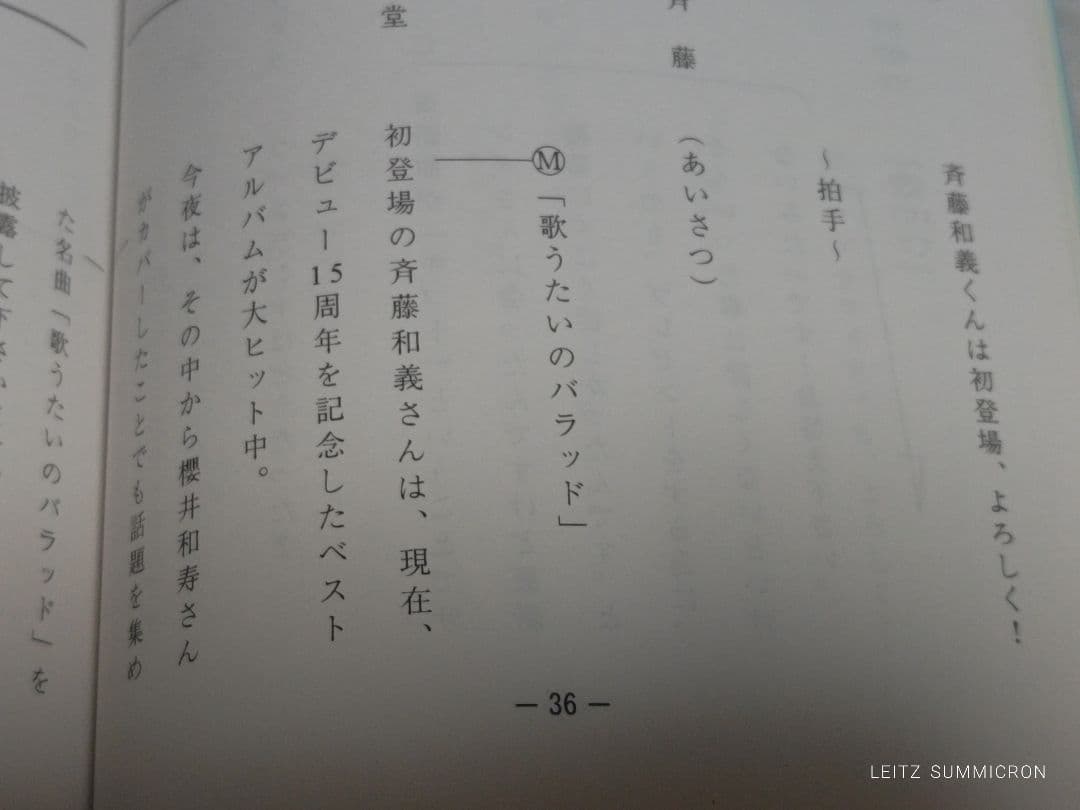 斉藤和義くんは初登場、よろしく！
〜拍手〜
斉藤
（あいさつ）
Ⓜ「歌うたいのバラッド」
堂
初登場の斉藤和義さんは、現在、
デビュー15周年を記念したベスト
アルバムが大ヒット中。
今夜は、その中から櫻井和寿さん
がカバーしたことでも話題を集め
た名曲「歌うたいのバラッド」を
披露して下さい
— 36 —
LEITZ SUMMICRON